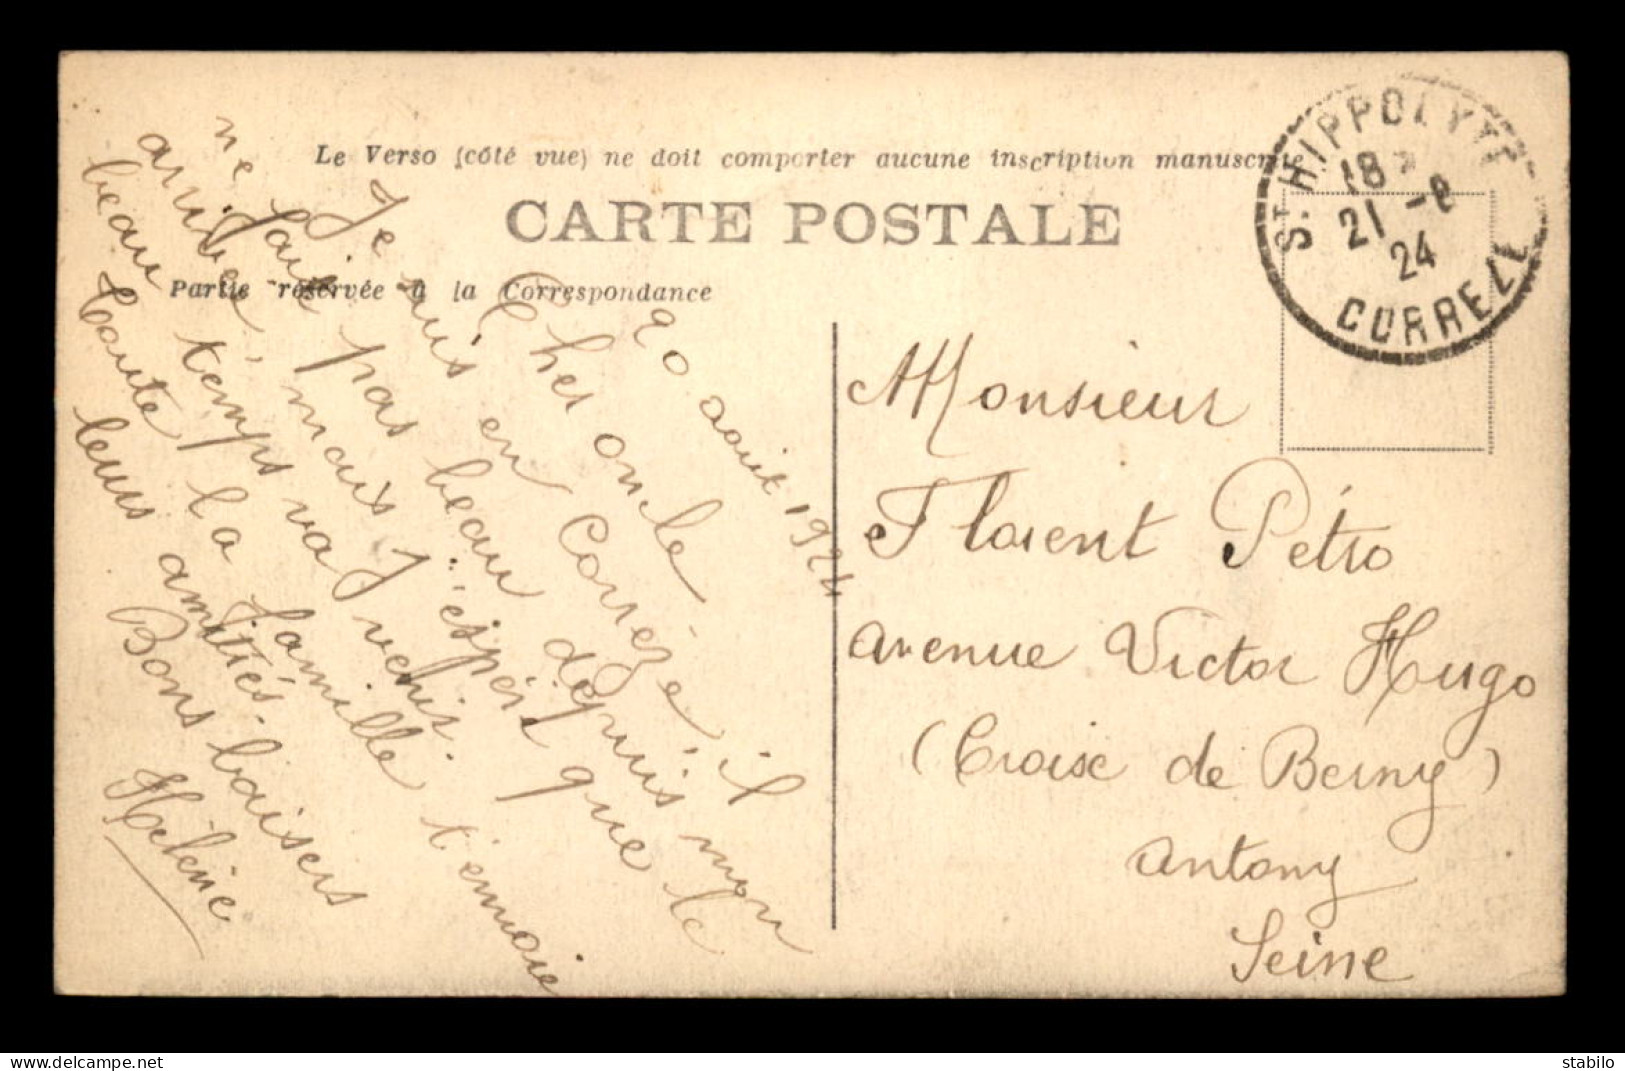 Le Verso (côté vue) ne doit comporter aucune inscription manuscrite
CARTE POSTALE
Partie réservée à la Correspondance
ST HIPPOLYTE
18
21 - 8
24
CORREZE
20 août 1924
Cher oncle
Je suis en Corrèze il
ne fait pas beau depuis mon
arrivée, mais j'espère que le
beau temps va venir.
Toute la famille t'envoie
leurs amitiés.
Bons baisers
Hélène
Monsieur
Florent Pétro
avenue Victor Hugo
(Croise de Berny)
Antony
Seine
stabilo